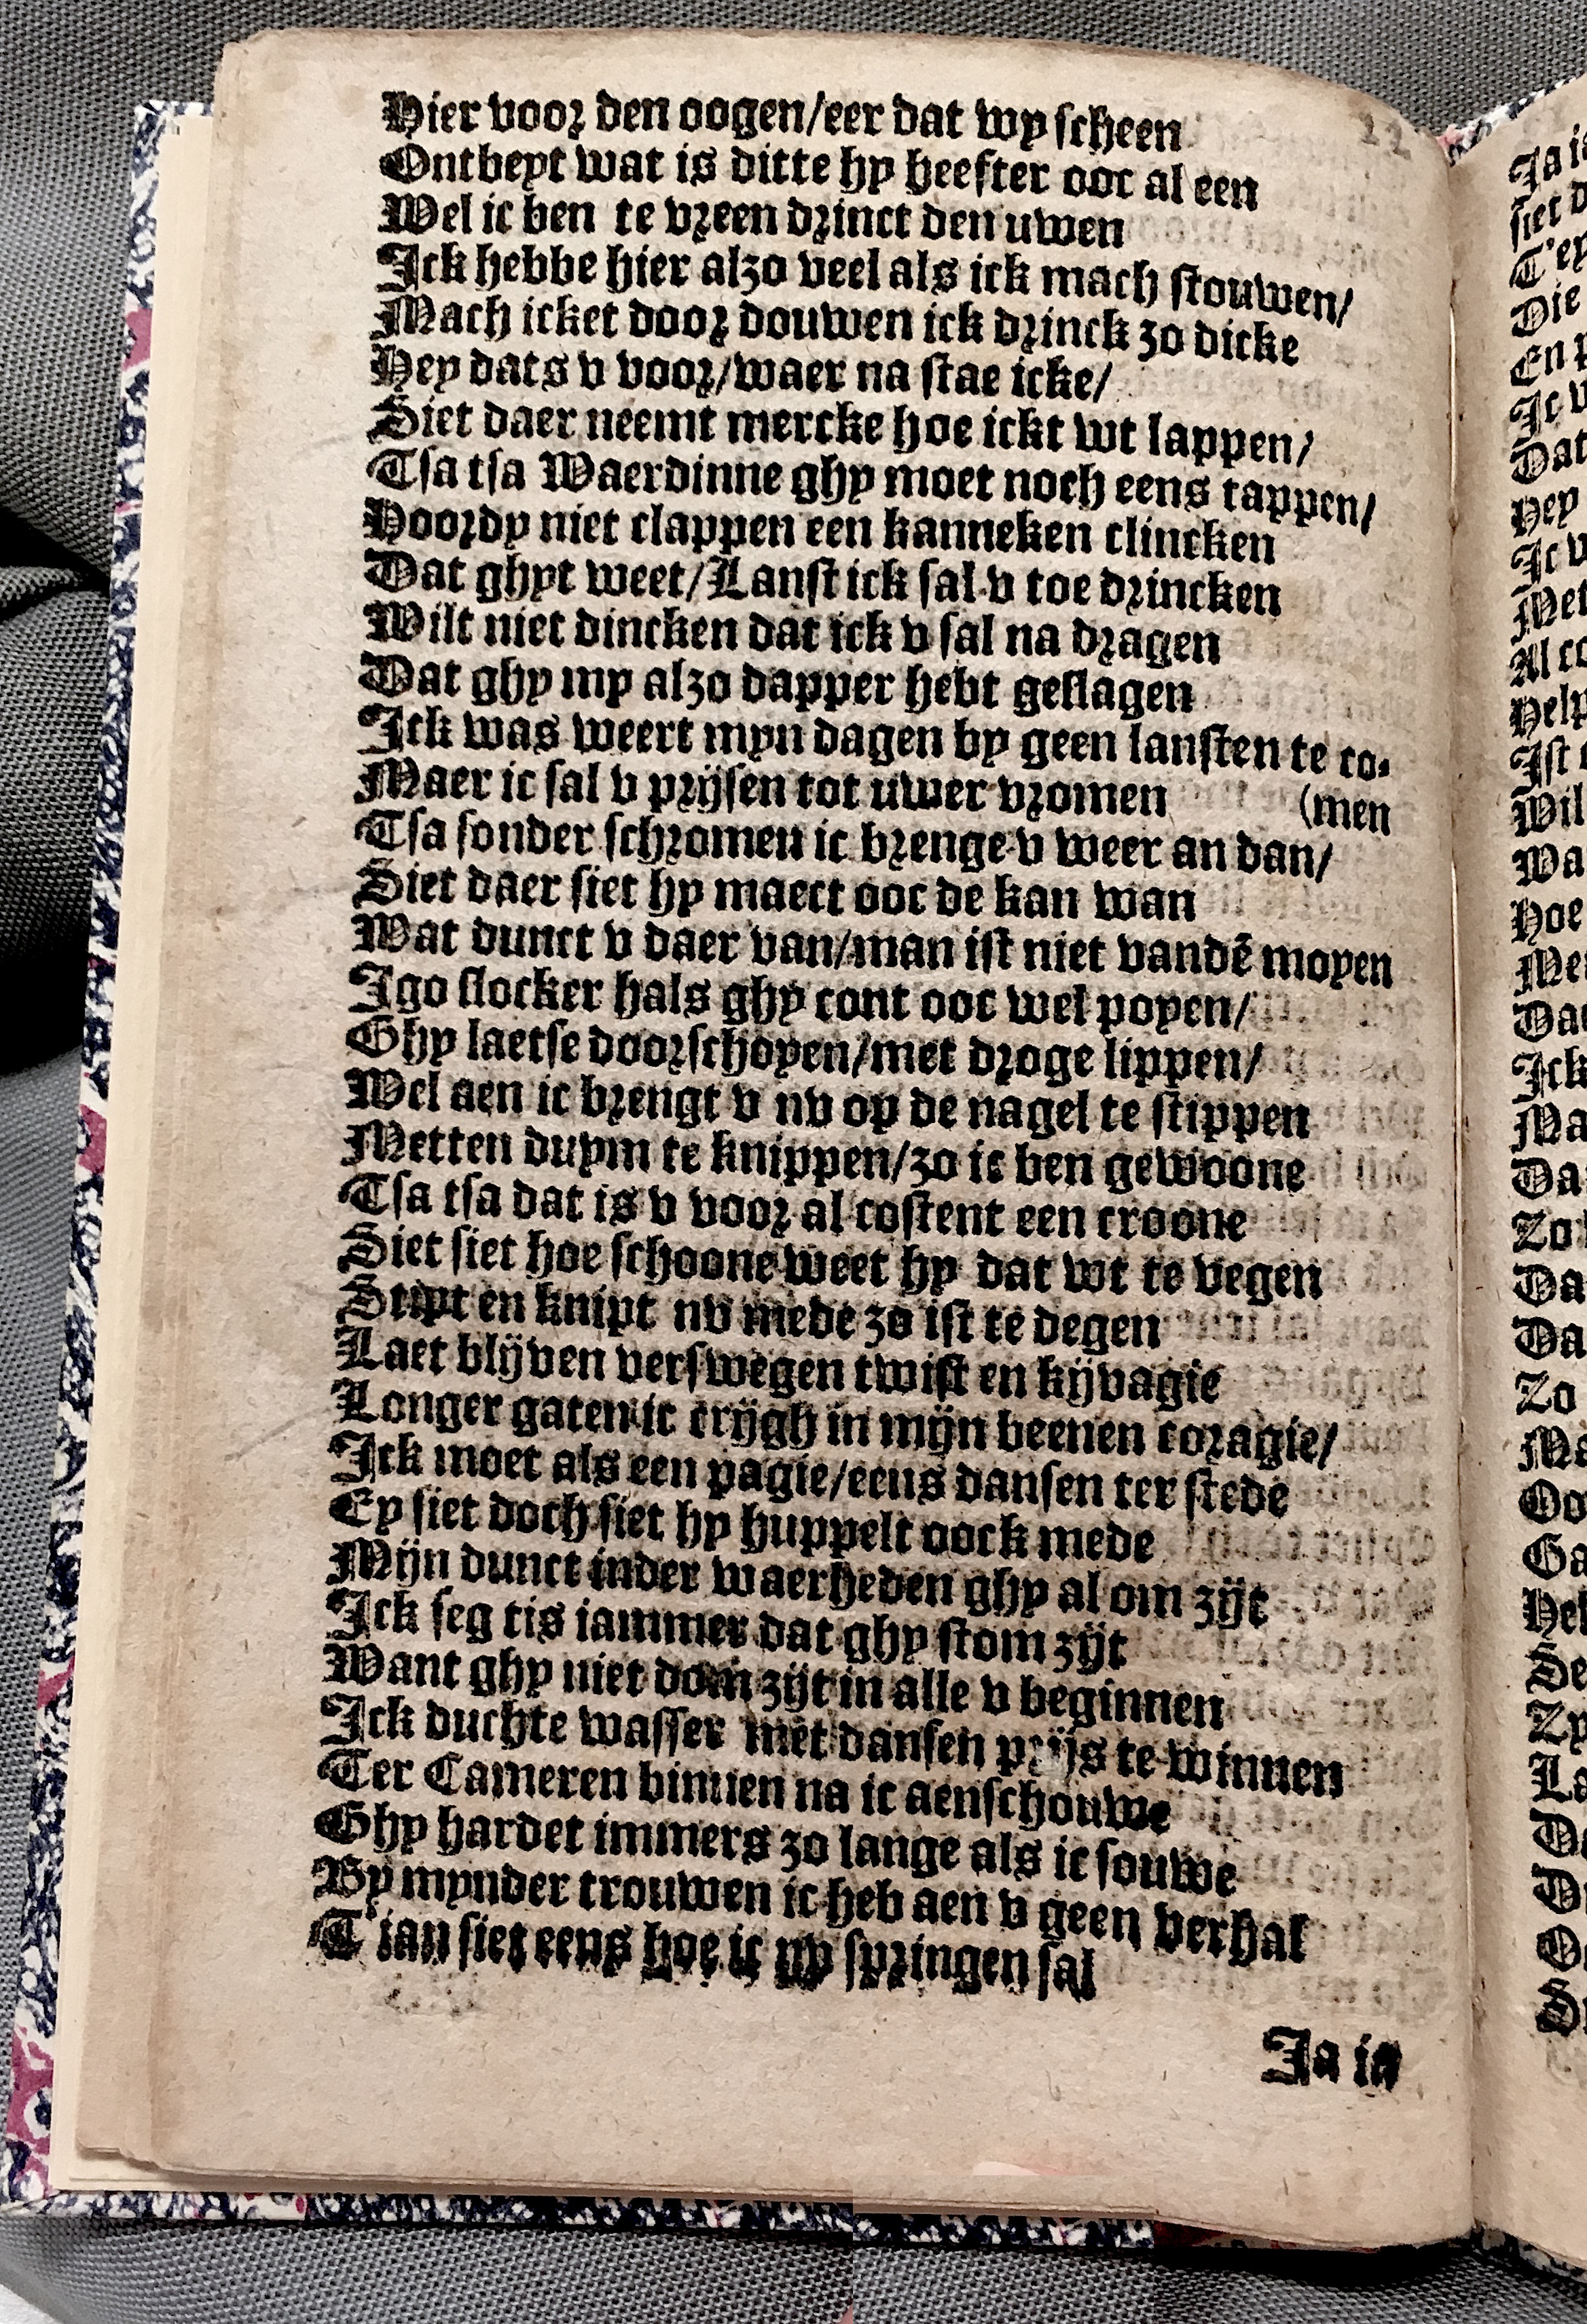 Hier voor den oogen/eer dat wy scheen
Ontbeyt wat is ditte hy heefter ooc al een
Wel ic ben te vreen drinct den uwen
Ick hebbe hier alzo veel als ick mach stouwen/
Mach icket door douwen ick drinck zo dicke
Hey dats v voor/waer na stae icke/
Siet daer neemt mercke hoe ickt wt lappen/
Tsa tsa Waerdinne ghy moet noch eens tappen/
Hoordy niet clappen een kanneken clincken
Dat ghyt weet/Lanst ick sal v toe drincken
Wilt niet dincken dat ick v sal na dragen
Dat ghy my alzo dapper hebt geslagen
Ick was weert myn dagen by geen lansten te co-
Maer ic sal v prijsen tot uwer vromen (men
Tsa sonder schromen ic brenge v weer an dan/
Siet daer siet hy maect ooc de kan wan
Wat dunct v daer van/man ist niet vandē moyen
Igo slocker hals ghy cont ooc wel poyen/
Ghy laetse doorschoyen/met droge lippen/
Wel aen ic brengt v nv op de nagel te stippen
Metten duym te knippen/zo ic ben gewoone
Tsa tsa dat is v voor al costent een croone
Siet siet hoe schoone weet hy dat wt te vegen
Stipt en knipt nv mede zo ist te degen
Laet blijven verswegen twist en kijvagie
Longer gaten ic crijgh in mijn beenen coragie/
Ick moet als een pagie/eens dansen ter stede
Ey siet doch siet hy huppelt oock mede
Mijn dunct inder waerheden ghy al om zijt
Ick seg tis iammer dat ghy stom zijt
Want ghy niet dom zijt in alle v beginnen
Ick duchte wasser met dansen prijs te winnen
Ter Cameren binnen na ic aenschouwe
Ghy hardet immers zo lange als ic souwe
By mynder trouwen ic heb aen v geen verhal
T'ian siet eens hoe ic vp springen sal
Ja ia
22
Ja i
siet d
T'ey
Die
En
Ic v
Dat
Hey
Ic v
Met
Al co
Help
Ist
Wil
Wa
Hoe
Me
Da
Ick
Ma
Da
Zo
Da
Da
Zo
Ma
Oo
Ga
He
Se
Zy
La
Da
D
O
S